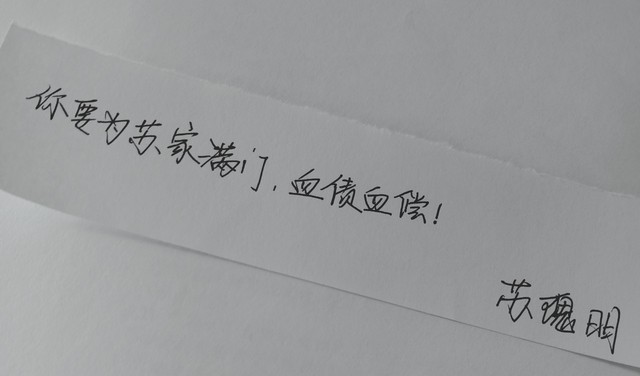 你要为苏家满门，血债血偿！
苏瑰明